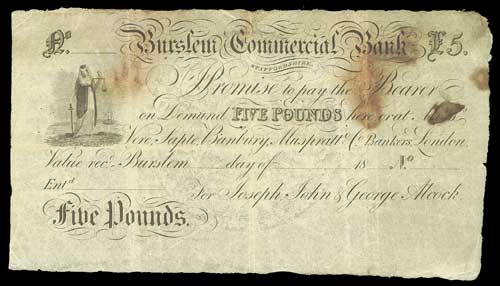 No Burslem Commercial Bank £5.
STAFFORDSHIRE.
I Promise to pay the Bearer
on Demand FIVE POUNDS here or at
Vere, Sapte, Banbury, Muspratt & Co Bankers, London
Value recd. Burslem day of 18 No
Entd
For Joseph, John & George Alcock.
Five Pounds.